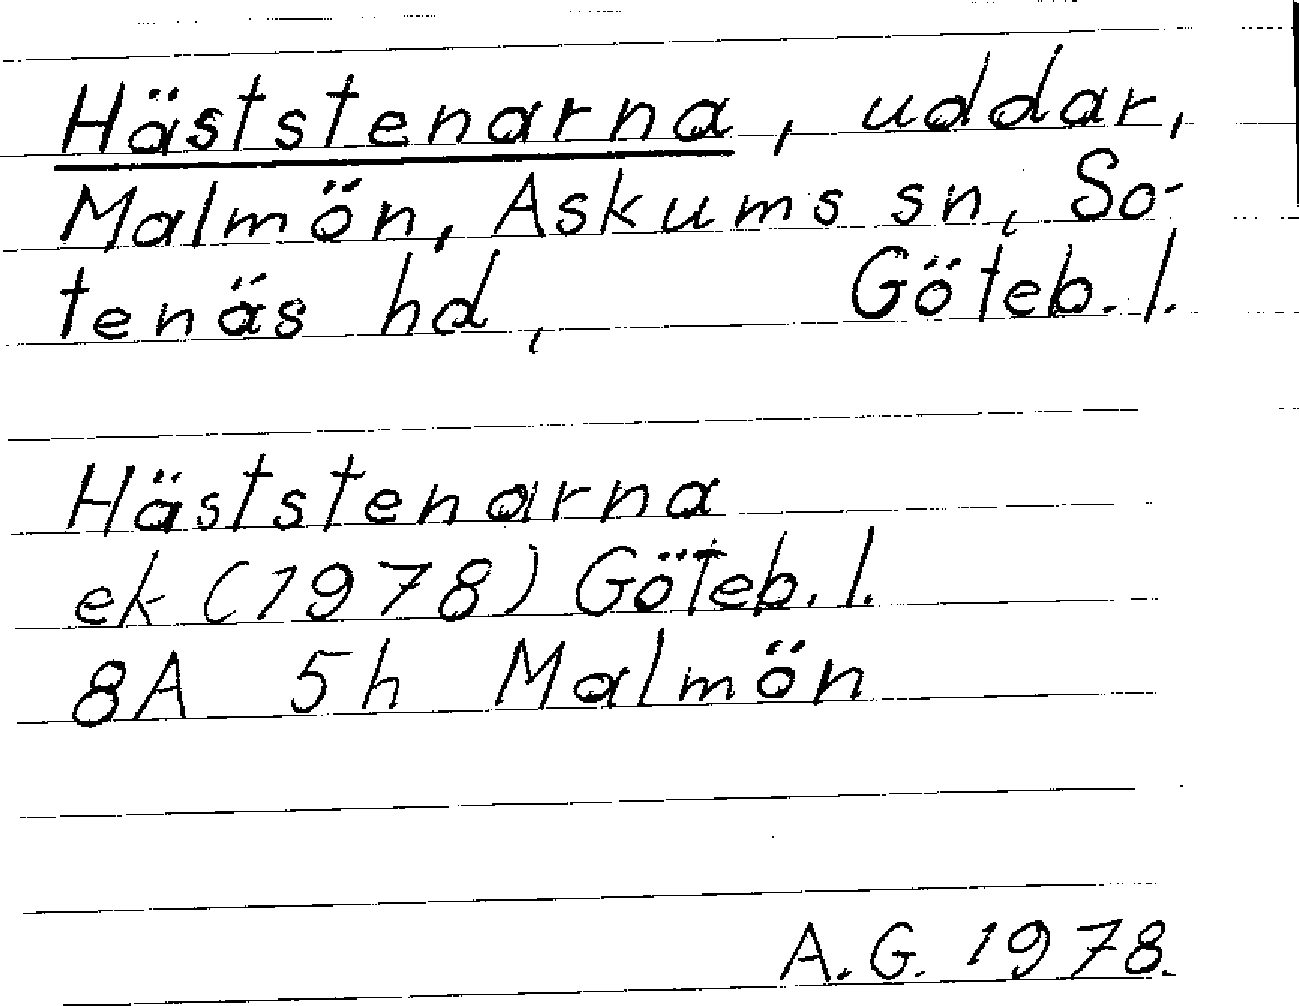 Häststenarna, uddar,
Malmön, Askums sn, So-
tenäs hd, Göteb. l.
Häststenarna
ek (1978) Göteb. l.
8A 5h Malmön
A.G. 1978.